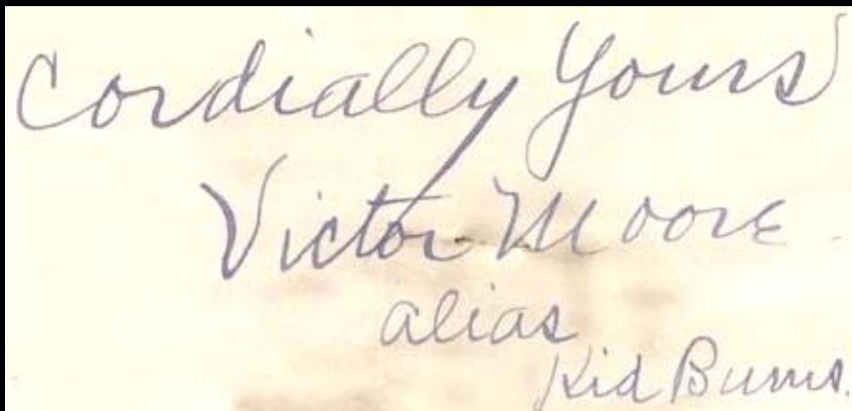 Cordially Yours
Victor Moore
alias
Kid Burns.